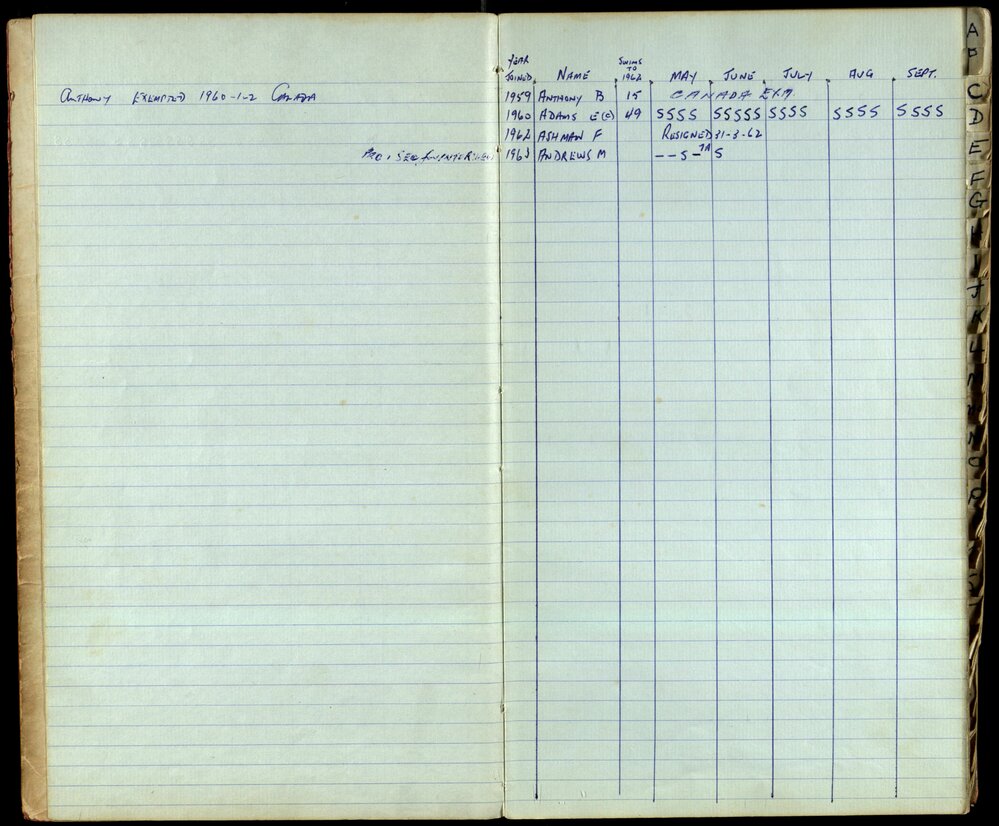 Anthony Exempted 1960-1-2 Canada
YEAR JOINED NAME SWIMS TO 1962 MAY JUNE JULY AUG SEPT.
1959 ANTHONY B 15 CANADA EXM
1960 ADAMS E(E) 49 SSSS SSSSS SSSS SSSS SSSS
1962 ASHMAN F RESIGNED 31-3-62
SEC for INTERVIEW 1961 ANDREWS M --S- S
A
C
D
E
F
G
J
K
L
N
O
P